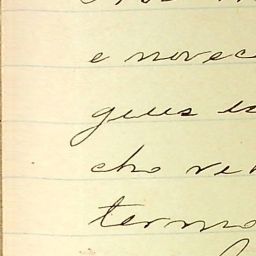 e novec
gues es
cho ver
termo